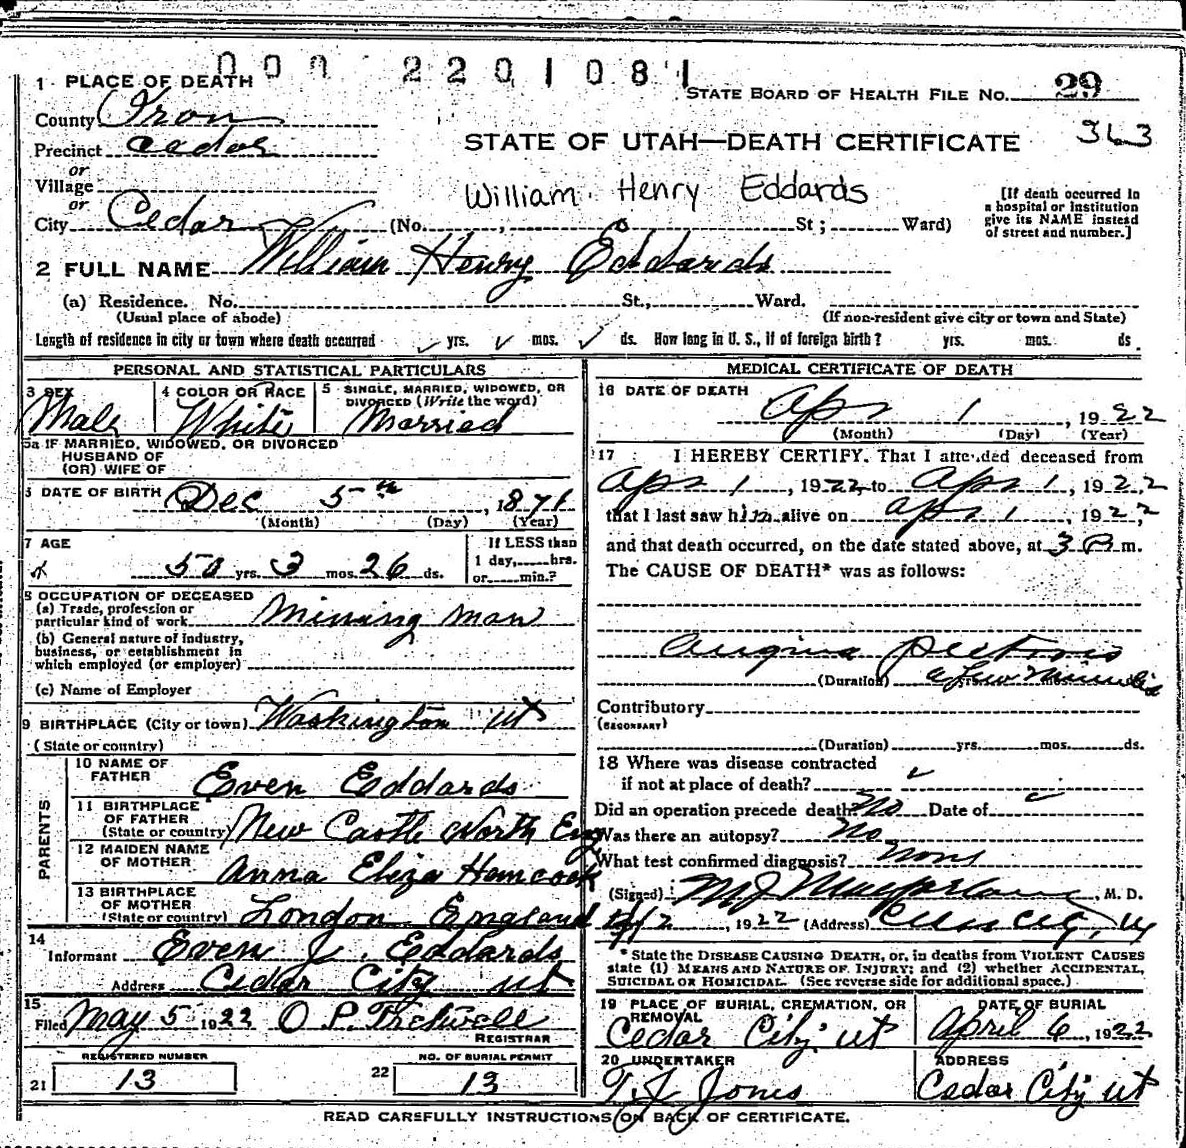 000 2201081
1 PLACE OF DEATH
STATE BOARD OF HEALTH FILE NO. 29
County Iron
STATE OF UTAH—DEATH CERTIFICATE 363
Precinct Cedar
or
Village
William Henry Eddards
[If death occurred in a hospital or institution give its NAME instead of street and number.]
or
City Cedar (No. , St ; Ward)
2 FULL NAME William Henry Eddards
(a) Residence. No. St., Ward.
(Usual place of abode) (If non-resident give city or town and State)
Length of residence in city or town where death occurred yrs. mos. ds. How long in U. S., if of foreign birth? yrs. mos. ds.
PERSONAL AND STATISTICAL PARTICULARS
3 SEX Male
4 COLOR OR RACE White
5 SINGLE, MARRIED, WIDOWED, OR DIVORCED (Write the word) Married
5a IF MARRIED, WIDOWED, OR DIVORCED
HUSBAND OF
(OR) WIFE OF
6 DATE OF BIRTH Dec 5th, 1871
(Month) (Day) (Year)
7 AGE
50 yrs. 3 mos. 26 ds.
If LESS than
1 day, hrs.
or min.?
8 OCCUPATION OF DECEASED
(a) Trade, profession or
particular kind of work Mining man
(b) General nature of industry,
business, or establishment in
which employed (or employer)
(c) Name of Employer
9 BIRTHPLACE (City or town) Washington ut
(State or country)
PARENTS
10 NAME OF
FATHER Even Eddards
11 BIRTHPLACE
OF FATHER
(State or country) New Castle North Eng
12 MAIDEN NAME
OF MOTHER Anna Eliza Hancock
13 BIRTHPLACE
OF MOTHER
(State or country) London England
14
Informant Even J. Eddards
Address Cedar City ut
15
Filed May 5 1922 O P. Fretwell
REGISTRAR
REGISTERED NUMBER
21 13
NO. OF BURIAL PERMIT
22 13
MEDICAL CERTIFICATE OF DEATH
16 DATE OF DEATH
Apr 1, 1922
(Month) (Day) (Year)
17 I HEREBY CERTIFY. That I attended deceased from
Apr 1, 1922, to Apr 1, 1922,
that I last saw him alive on Apr 1, 1922,
and that death occurred, on the date stated above, at 3 P m.
The CAUSE OF DEATH* was as follows:
Angina pectoris
(Duration) a few minutes yrs. mos. ds.
Contributory
(SECONDARY)
(Duration) yrs. mos. ds.
18 Where was disease contracted
if not at place of death?
Did an operation precede death? No Date of
Was there an autopsy? No
What test confirmed diagnosis? None
(Signed) M J Macfarlane, M. D.
, 1922 (Address) Cedar City, Ut
* State the DISEASE CAUSING DEATH, or, in deaths from VIOLENT CAUSES
state (1) MEANS AND NATURE OF INJURY; and (2) whether ACCIDENTAL,
SUICIDAL OR HOMICIDAL. (See reverse side for additional space.)
19 PLACE OF BURIAL, CREMATION, OR
REMOVAL
Cedar City ut
DATE OF BURIAL
April 6, 1922
20 UNDERTAKER
T J Jones
ADDRESS
Cedar City ut
READ CAREFULLY INSTRUCTIONS ON BACK OF CERTIFICATE.